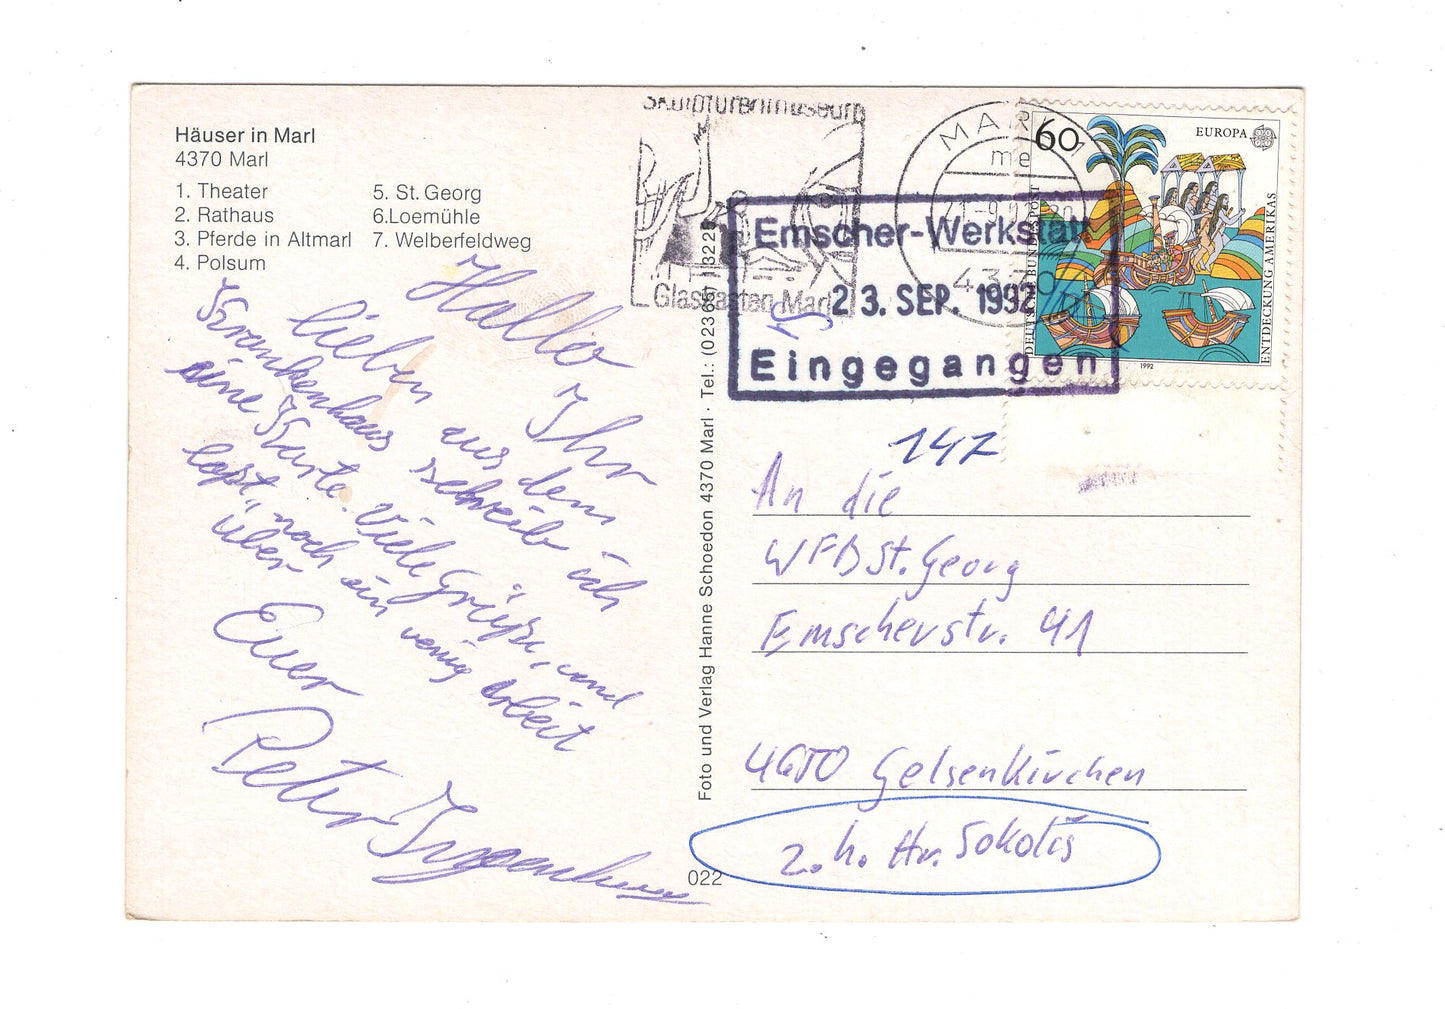 Häuser in Marl
4370 Marl
1. Theater
2. Rathaus
3. Pferde in Altmarl
4. Polsum
5. St. Georg
6.Loemühle
7. Welberfeldweg
Hallo Ihr
lieben aus dem
Krankenhaus schreib ich
eine Karte. Viele Grüße, und
laßt noch ein wenig Arbeit
über
Euer
Peter
Foto und Verlag Hanne Schoedon 4370 Marl · Tel.: (02365) 13225
022
Skulpturenmuseum
Glaskasten Marl
MARL 1
me
4370
Emscher-Werkstatt
23. SEP. 1992
Eingegangen
60
EUROPA
DEUTSCHE BUNDESPOST
ENTDECKUNG AMERIKAS
1992
147
An die
WFB St. Georg
Emscherstr. 41
4650 Gelsenkirchen
z. h. Hr. Sokolis